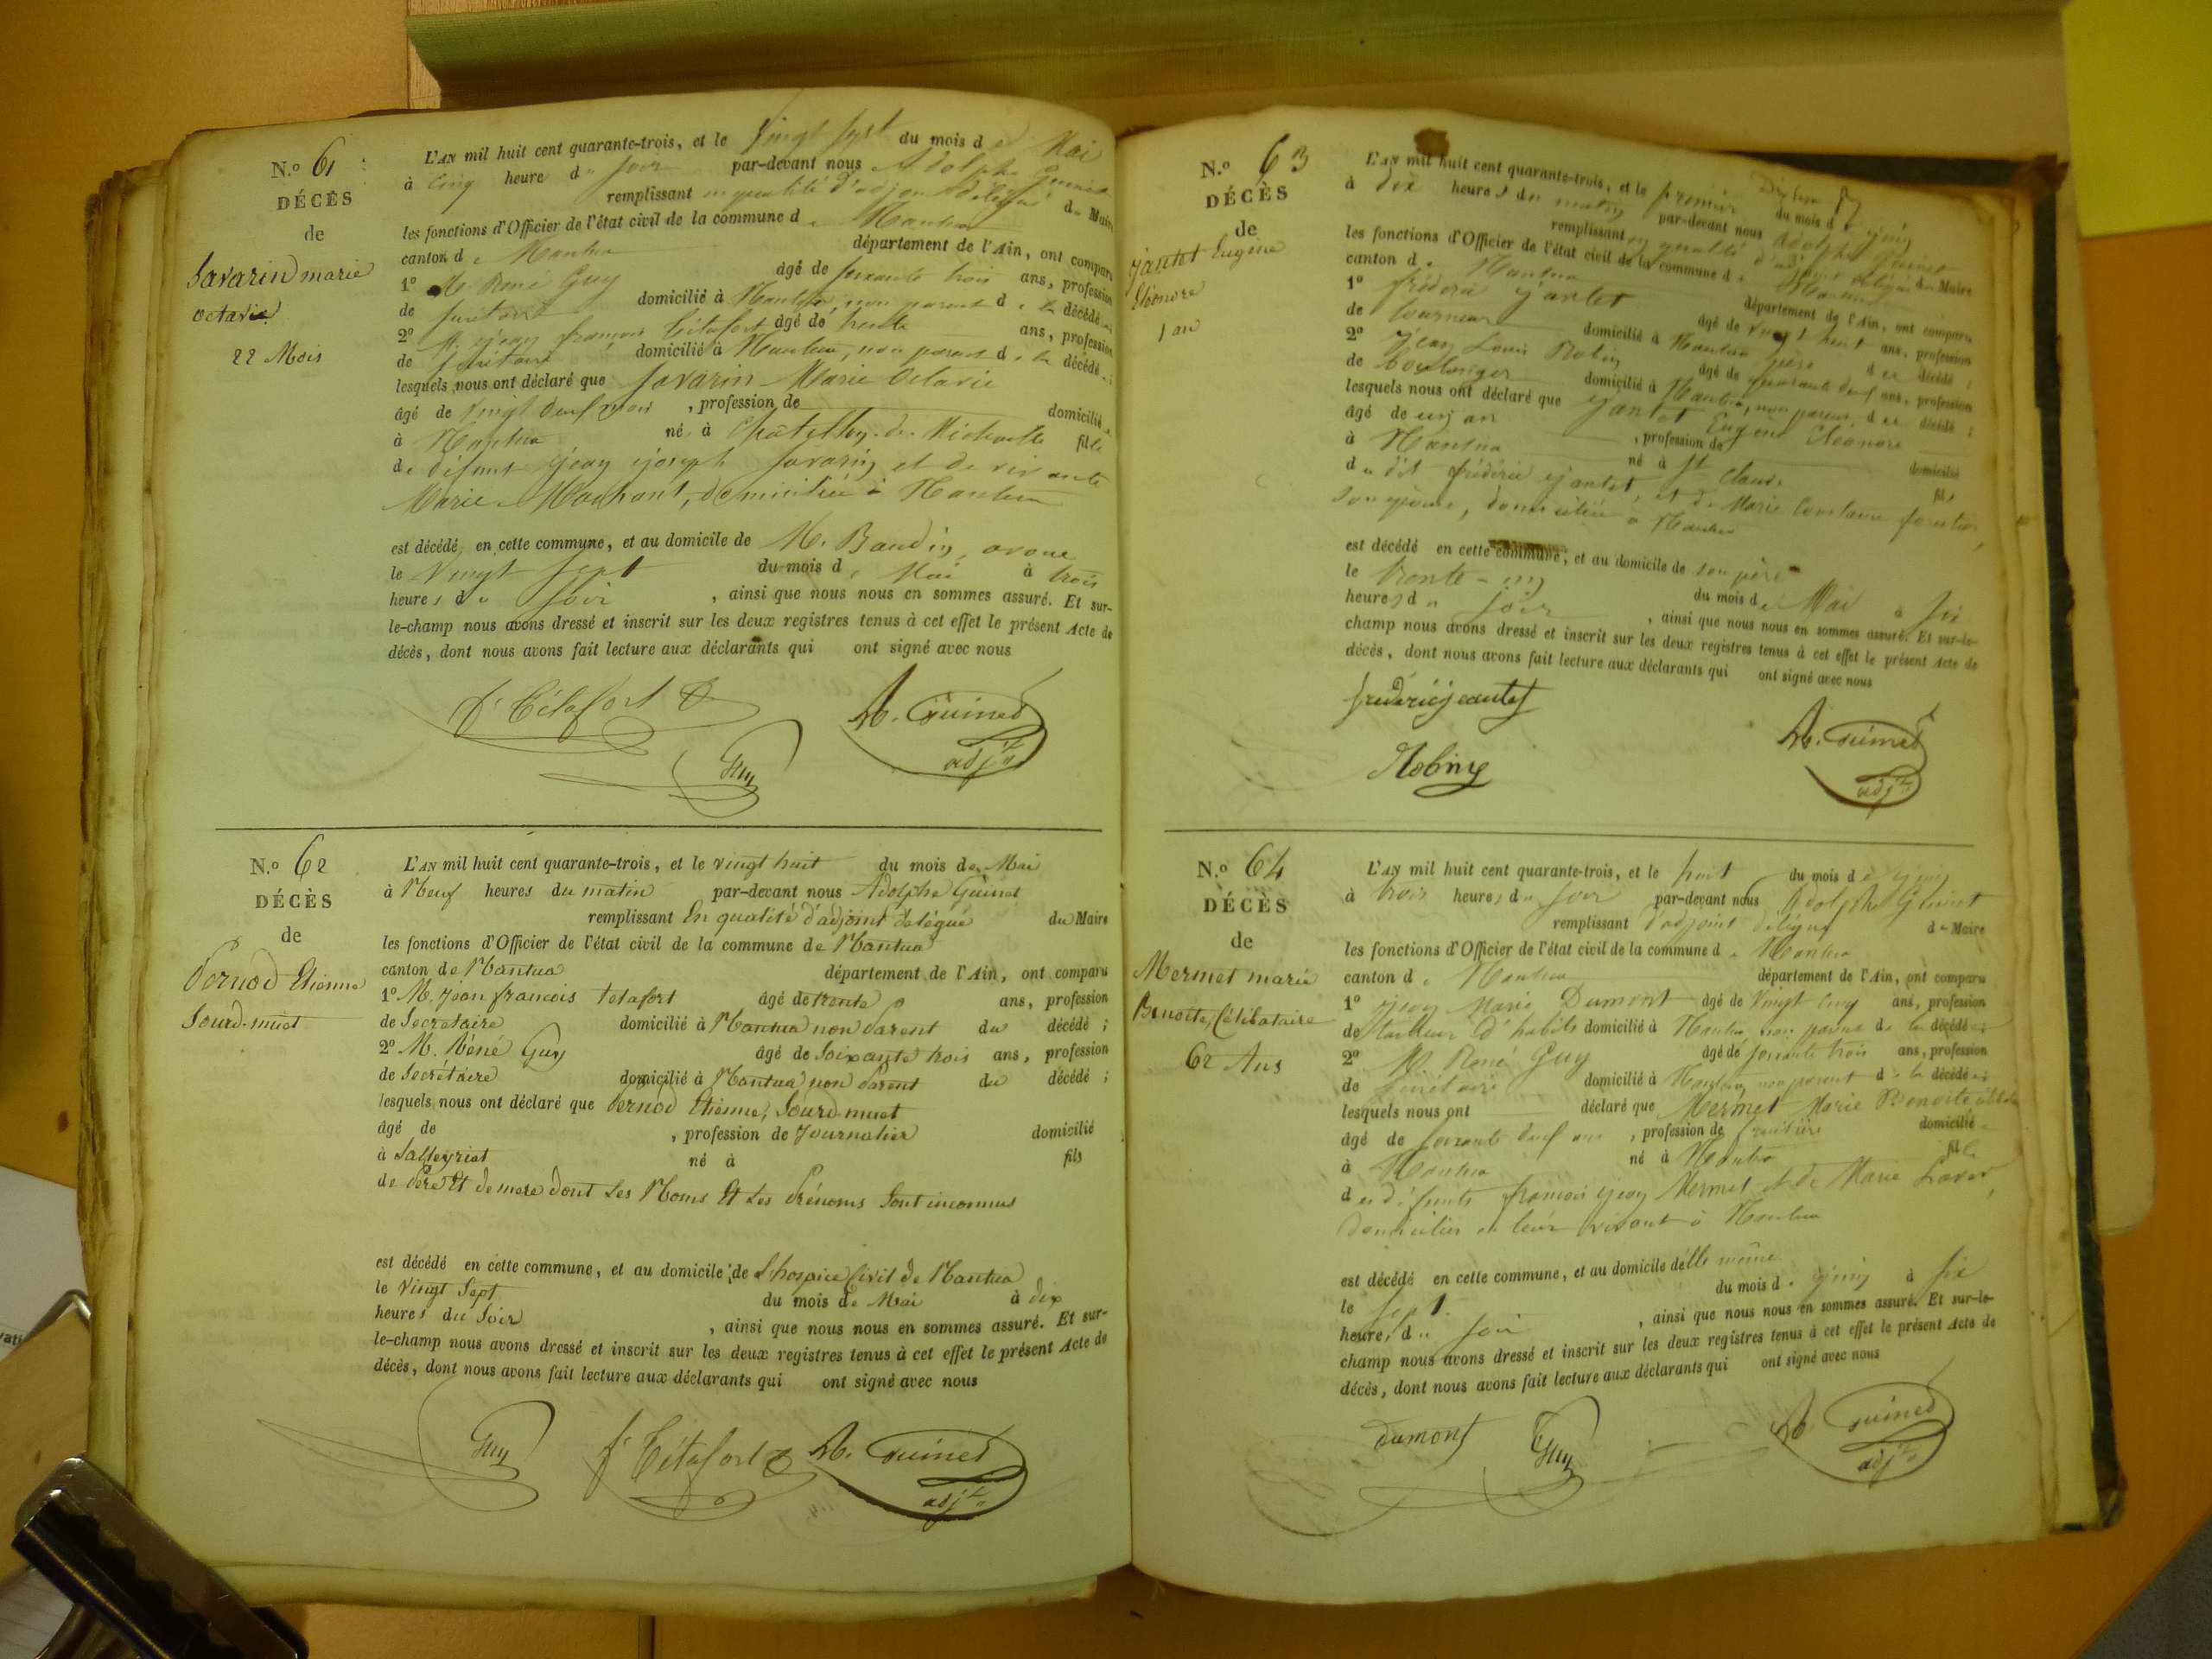 N.o 61
DÉCÈS
de
Savarin marie
octavie
22 Mois
L'AN mil huit cent quarante-trois, et le vingt sept du mois de Mai
à cinq heure du soir par-devant nous Adolphe Guinet
remplissant en qualité d'adjoint délégué du Maire
les fonctions d'Officier de l'état civil de la commune de Nantua
canton de Nantua département de l'Ain, ont comparu
1o M. René Guy âgé de soixante trois ans, profession
de secrétaire domicilié à Nantua non parent de la décédée
2o M. jean françois Tétafort âgé de trente ans, profession
de secrétaire domicilié à Nantua, non parent de la décédée ;
lesquels nous ont déclaré que Savarin Marie Octavie
âgé de vingt deux mois , profession de domicilié
à Nantua né à Châtillon de Michaille fille
de défunt jean joseph Savarin et de vivante
Marie domiciliée à Nantua
est décédé en cette commune, et au domicile de M. Baudin, avoué
le vingt sept du mois de Mai à trois
heures du soir , ainsi que nous nous en sommes assuré. Et sur-
le-champ nous avons dressé et inscrit sur les deux registres tenus à cet effet le présent Acte de
décès, dont nous avons fait lecture aux déclarants qui ont signé avec nous
f. Tétafort A. Guinet
Guy adjt
N.o 62
DÉCÈS
de
Pernod Etienne
Sourd-muet
L'AN mil huit cent quarante-trois, et le vingt huit du mois de Mai
à Neuf heures du matin par-devant nous Adolphe Guinet
remplissant En qualité d'adjoint délégué du Maire
les fonctions d'Officier de l'état civil de la commune de Nantua
canton de Nantua département de l'Ain, ont comparu
1o M. jean francois tetafort âgé de trente ans, profession
de Secretaire domicilié à Nantua non Parent du décédé ;
2o M. Réné Guy âgé de Soixante trois ans, profession
de Secrétaire domicilié à Nantua non Parent du décédé ;
lesquels nous ont déclaré que Pernod Etienne, Sourd-muet
âgé de , profession de Journalier domicilié
à Salleyriat né à fils
de Père Et de mere dont Les Noms Et Les Prénoms Sont inconnus
est décédé en cette commune, et au domicile de L'hospice Civil de Nantua
le Vingt Sept du mois de Mai à dix
heures du Soir , ainsi que nous nous en sommes assuré. Et sur-
le-champ nous avons dressé et inscrit sur les deux registres tenus à cet effet le présent Acte de
décès, dont nous avons fait lecture aux déclarants qui ont signé avec nous
Guy f. Tétafort A. Guinet
adjt
N.o 63
DÉCÈS
de
jantet Eugène
Eléonore
1 an
L'AN mil huit cent quarante-trois, et le premier du mois de juin
à dix heures du matin par-devant nous Adolphe Guinet
remplissant en qualité d'adjoint délégué du Maire
les fonctions d'Officier de l'état civil de la commune de Nantua
canton de Nantua département de l'Ain, ont comparu
1o frédéric jantet âgé de vingt huit ans, profession
de tourneur domicilié à Nantua père du décédé ;
2o jean Louis Robin âgé de quarante neuf ans, profession
de boulanger domicilié à Nantua, non parent du décédé ;
lesquels nous ont déclaré que jantet Eugène Eléonore
âgé de un an , profession de domicilié
à Nantua né à St Claude fils
du dit frédéric jantet, et de Marie Constance
son épouse, domiciliée à Nantua
est décédé en cette commune, et au domicile de son père
le trente-un du mois de Mai à six
heures du soir , ainsi que nous nous en sommes assuré. Et sur-le-
champ nous avons dressé et inscrit sur les deux registres tenus à cet effet le présent Acte de
décès, dont nous avons fait lecture aux déclarants qui ont signé avec nous
frédéricjeantet
A. Guinet
Robin
adjt
N.o 64
DÉCÈS
de
Mermet marie
Benoite, Célibataire
62 Ans
L'AN mil huit cent quarante-trois, et le huit du mois de juin
à trois heures du soir par-devant nous Adolphe Guinet
remplissant d'adjoint délégué du Maire
les fonctions d'Officier de l'état civil de la commune de Nantua
canton de Nantua département de l'Ain, ont comparu
1o jean Marie Dumont âgé de vingt cinq ans, profession
de tailleur d'habits domicilié à Nantua, non parent de la décédée ;
2o M. René Guy âgé de soixante trois ans, profession
de secrétaire domicilié à Nantua, non parent de la décédée ;
lesquels nous ont déclaré que Mermet Marie Benoite
âgé de soixante deux ans , profession de domicilié
à Nantua né à Nantua fille
des défunts françois jean Mermet et de Marie
domiciliés en leur vivant à Nantua
est décédé en cette commune, et au domicile d'elle même
le sept du mois de juin à six
heures du soir , ainsi que nous nous en sommes assuré. Et sur-le-
champ nous avons dressé et inscrit sur les deux registres tenus à cet effet le présent Acte de
décès, dont nous avons fait lecture aux déclarants qui ont signé avec nous
dumont Guy A. Guinet
adjt